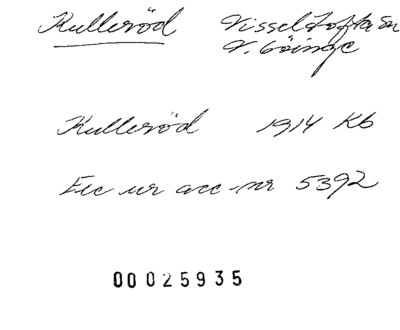 Kulleröd Visseltofta sn
V. Göinge
Kulleröd 1914 Kb
Exc ur acc-nr 5392
00025935